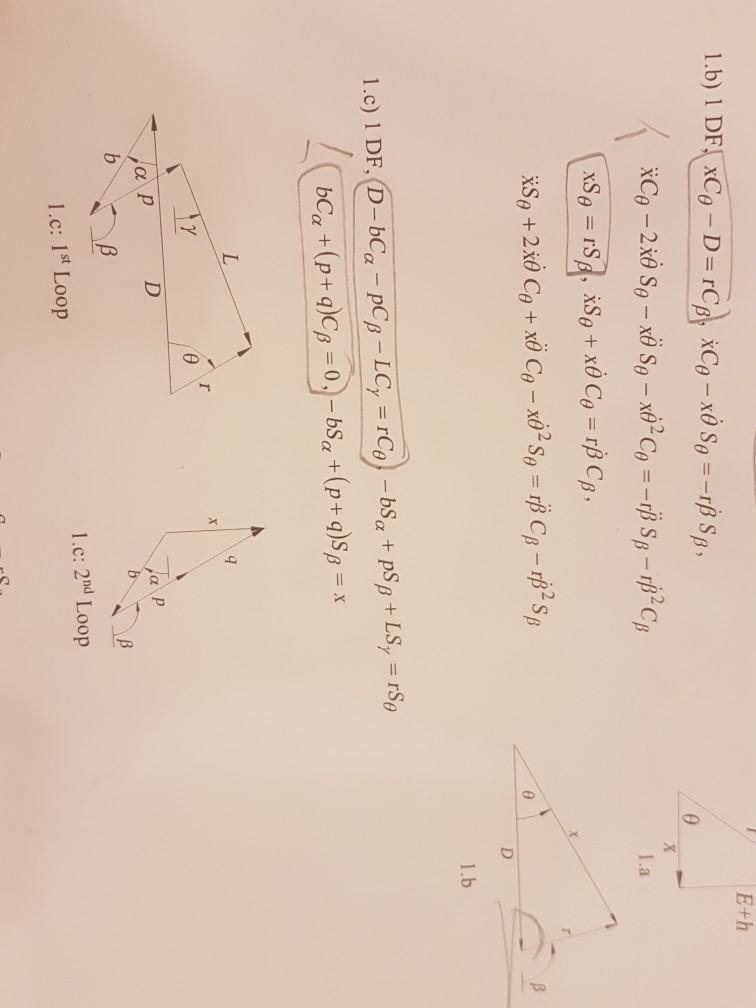 1.b) 1 DF, xC_θ − D = rC_β, ẋC_θ − xθ̇ S_θ = −rβ̇ S_β,
ẍC_θ − 2ẋθ̇ S_θ − xθ̈ S_θ − xθ̇²C_θ = −rβ̈ S_β − rβ̇²C_β
xS_θ = rS_β, ẋS_θ + xθ̇ C_θ = rβ̇ C_β,
ẍS_θ + 2ẋθ̇ C_θ + xθ̈ C_θ − xθ̇² S_θ = rβ̈ C_β − rβ̇² S_β
1.c) 1 DF, D − bC_α − pC_β − LC_γ = rC_θ, −bS_α + pS_β + LS_γ = rS_θ
bC_α + (p+q)C_β = 0, −bS_α + (p+q)S_β = x
L
γ
r
θ
α
p
b
β
D
1.c: 1st Loop
x
q
α
p
b
β
1.c: 2nd Loop
E+h
θ
x
1.a
x
θ
r
D
β
1.b